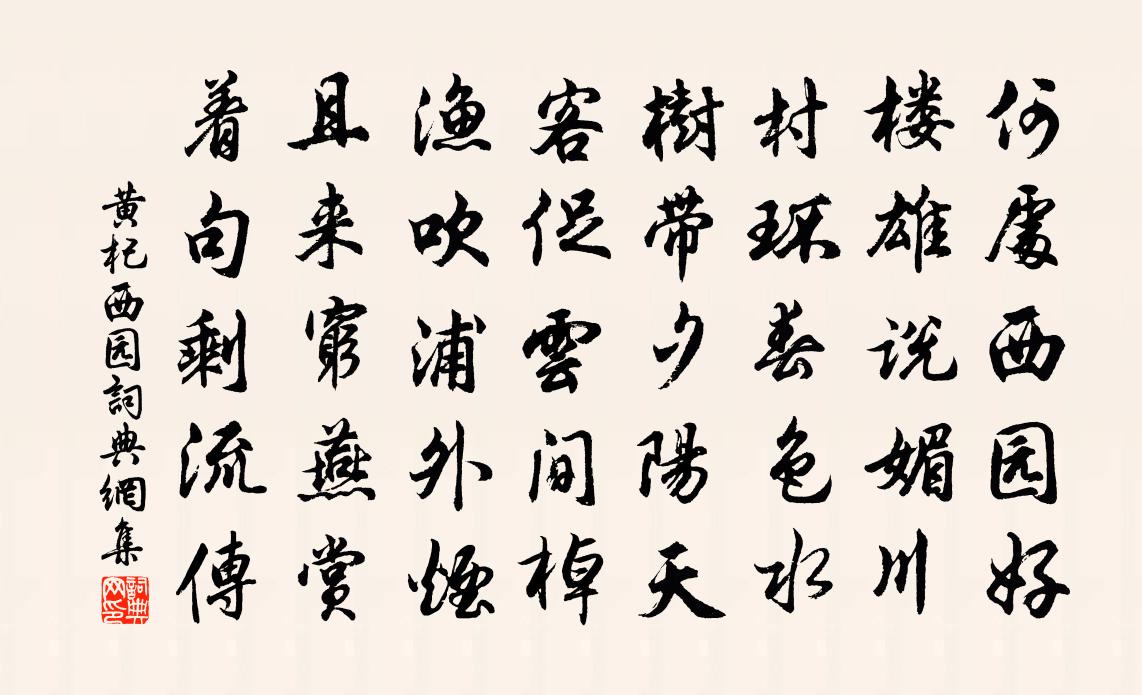 何處西园好
楼雄说媚川
村环春色水
樹带夕陽天
客促雲间棹
渔吹浦外煙
且来窮燕赏
着句剩流傳
黄杞西园詞典網集
詞典网印